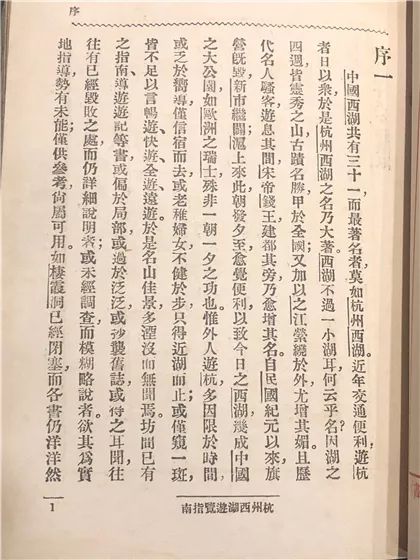 序
序一
中國西湖共有三十一而最著名者莫如杭州西湖。近年交通便利遊杭
者日以衆於是杭州西湖之名乃大著西湖不過一小湖耳何云乎名因湖之
四週皆靈秀之山古蹟名勝甲於全國又加以之江縈繞於外尤增其媚且歷
代名人騷客遊息其間宋帝錢王建都其旁乃愈增其名自民國紀元以來旗
營既毀新市繼闢滬上來此朝發夕至愈覺便利以致今日之西湖幾成中國
之大公園如歐洲之瑞士殊非一朝一夕之功也惟外人遊杭多因限於時間
或乏於嚮導僅信宿而去或老稚婦女不健於步只得近湖而止或僅窺一斑
皆不足以言暢遊、快遊、全遊、遠遊。於是名山佳景多湮沒而無聞焉。坊間已有
之指南、導遊、遊記等書或偏於局部或過於泛泛或沙襲舊誌或得之耳聞往
往有已經毀敗之處而仍詳細說明者或未經調查而模糊略說者欲其爲實
地指導勢有未能僅供參考尙屬可用。如棲霞洞已經閉塞而各書仍洋洋然
杭州西湖遊覽指南
1